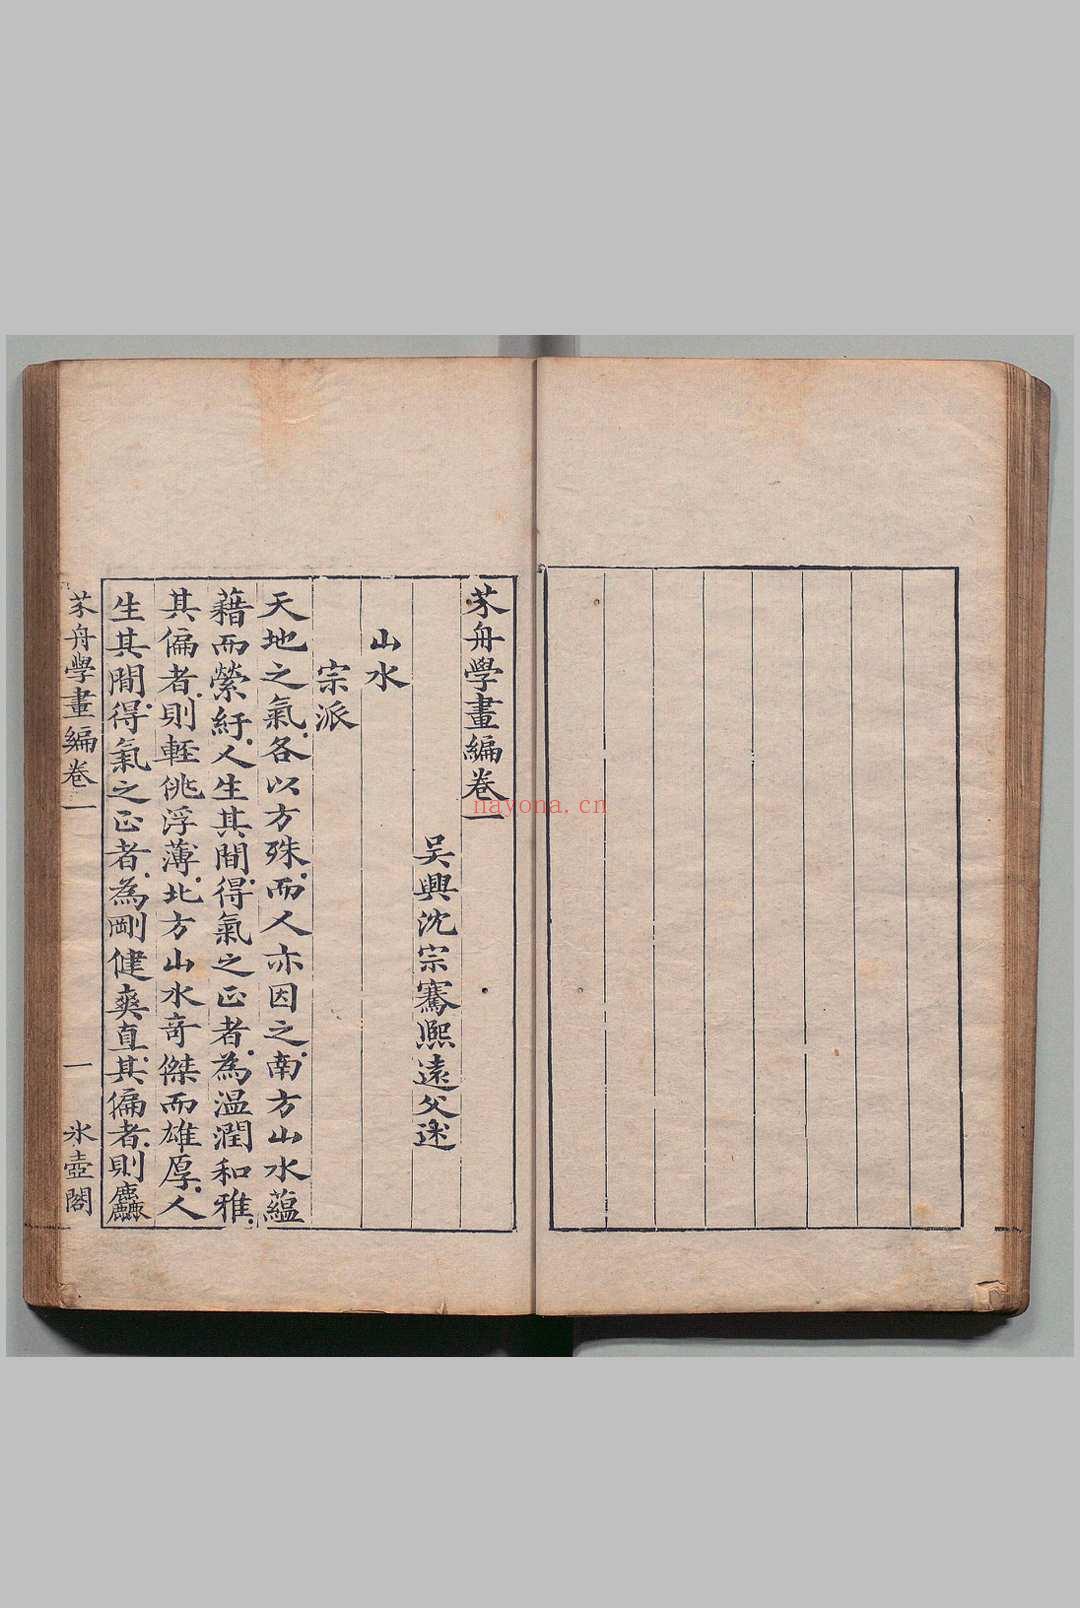 芥舟學畫編卷一
吳興沈宗騫熙遠父述
山水
宗派
天地之氣各以方殊而人亦因之南方山水蘊
藉而縈紆人生其間得氣之正者為温潤和雅
其偏者則輕佻浮薄北方山水奇傑而雄厚人
生其間得氣之正者為剛健爽直其偏者則麤
芥舟學畫編卷一
一
冰壺閣
nayona.cn